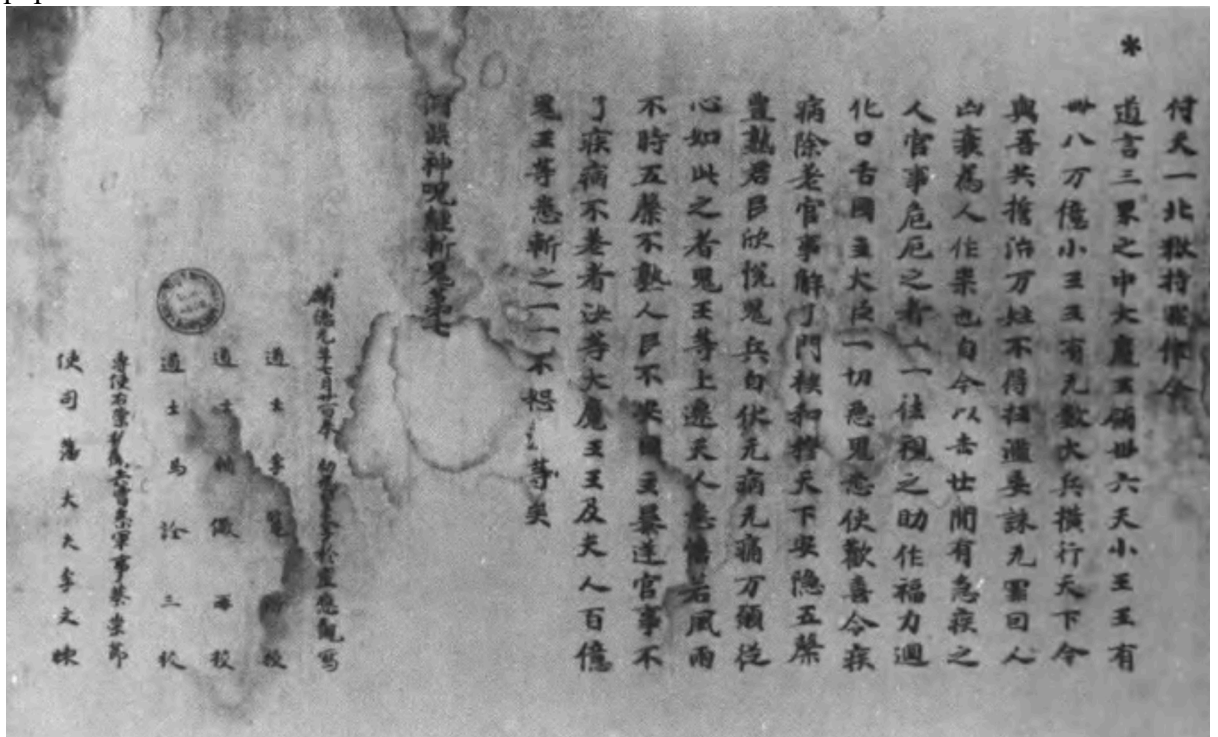 付天一北獄持罪作令
道言三界之中大魔王領卅六天小王王有
卌八万億小王王有无數大兵橫行天下今
與吾共擔治万姓不得枉濫妄誅无罪回人
凶衰為人作祟也自今以去世間有急疾之
人官事危厄之者一一往視之助作福力迴
化口舌國主大臣一切惡鬼悉使歡喜令疾
病除老官事解了門秧和擔天下安隱五槃
豐熟君臣欣悅鬼兵自伏无病无痛万願從
心如此之者鬼王等上遷天人悉僃若風雨
不時五槃不熟人民不安國主暴逆官事不
了疾病不老者汝等大魔王王及夫人百億
鬼王等悉斬之一一不恕 等矣
洞淵神呪經斬鬼第七
麟德元年七月廿一日奉 勑為皇太子於靈應觀寫
道士李覽初校
道士輔儼再校
道士馬詮三校
專使右崇掖衛兵曹參軍事蔡崇節
使司藩大夫李文暕